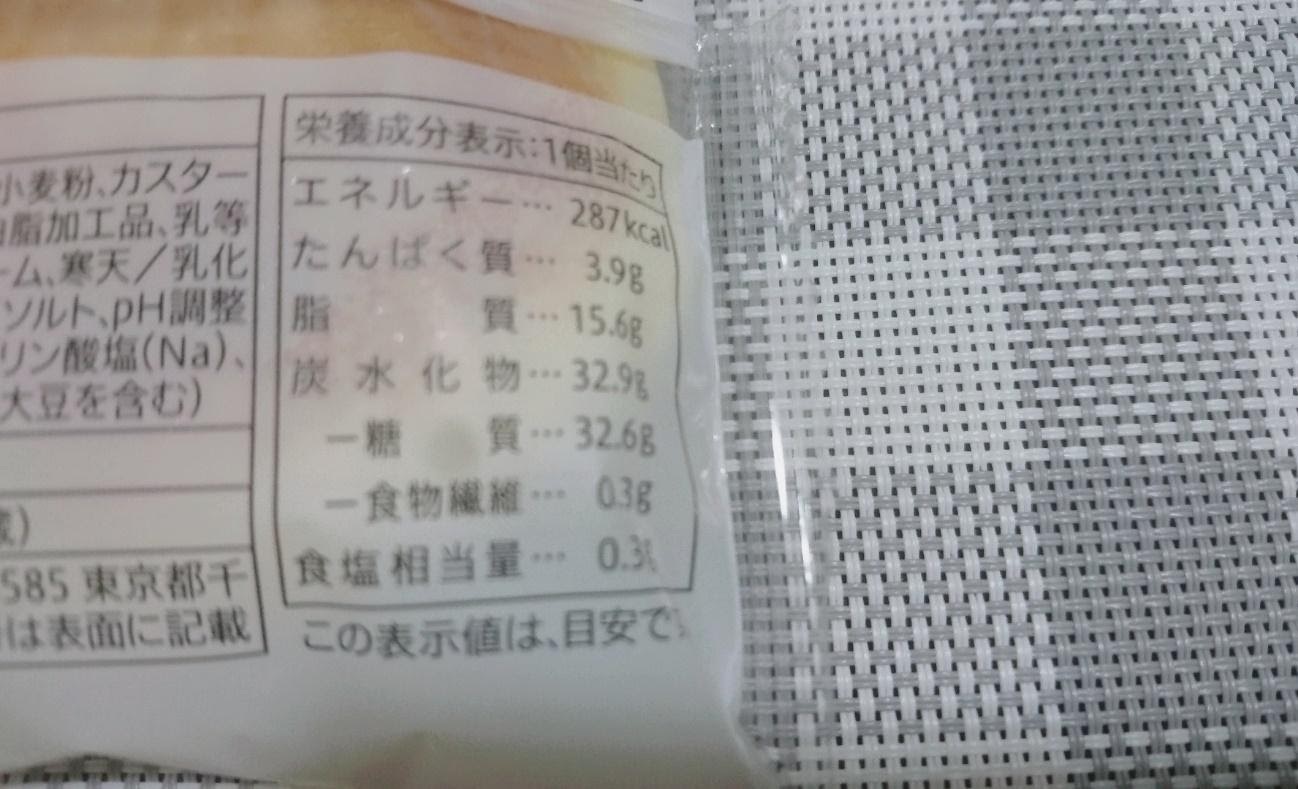 小麦粉、カスター
脂加工品、乳等
ーム、寒天／乳化
ソルト、pH調整
リン酸塩(Na)、
大豆を含む)
585 東京都千
は表面に記載
栄養成分表示:1個当たり
エネルギー… 287kcal
たんぱく質… 3.9g
脂質… 15.6g
炭水化物… 32.9g
ー糖質… 32.6g
ー食物繊維… 0.3g
食塩相当量… 0.3
この表示値は、目安で